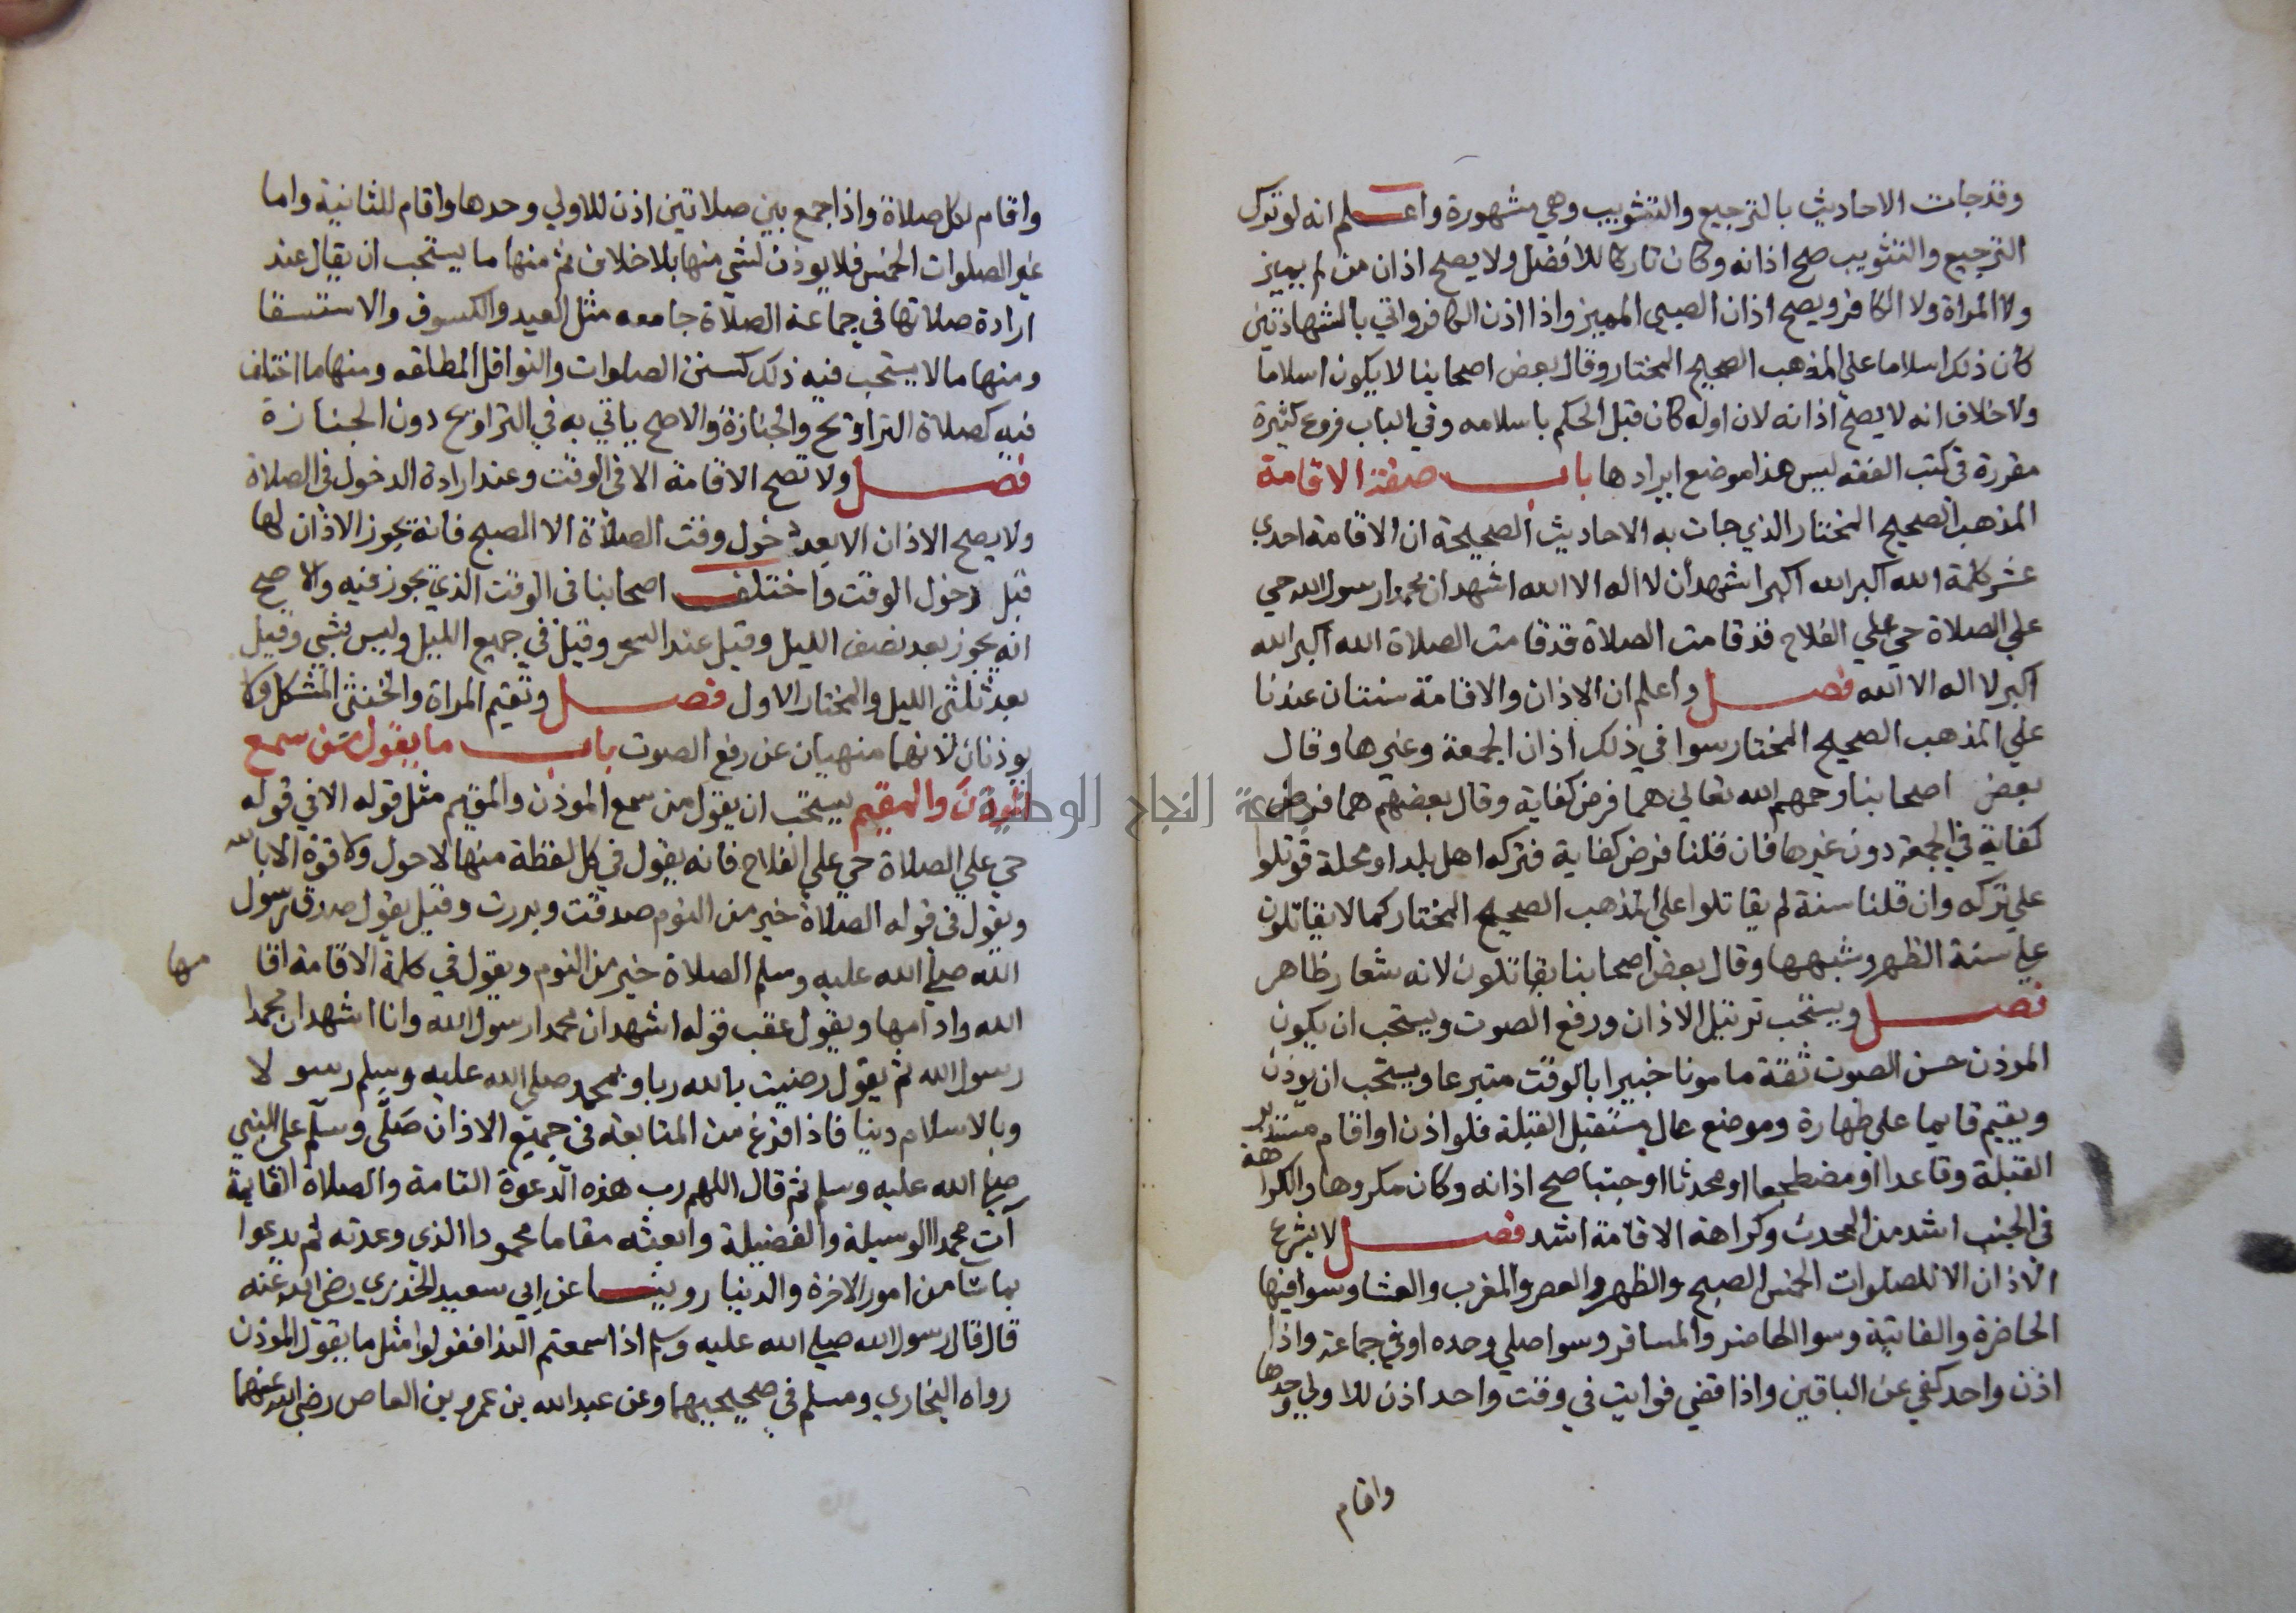 وقد جات الاحاديث بالترجيع والتثويب وهي مشهورة واعلم انه لو ترك
الترجيع والتثويب صح اذانه وكان تاركا للافضل ولا يصح اذان من لم يميز
ولا المراة ولا الكافر ويصح اذان الصبي المميز واذا اذن الكافر واتي بالشهادتين
كان ذلك اسلاما علي المذهب الصحيح المختار وقال بعض اصحابنا لا يكون اسلاما
ولا خلاف انه لا يصح اذانه لان اوله كان قبل الحكم باسلامه وفي الباب فروع كثيرة
مقررة في كتب الفقه ليس هذا موضع ايرادها باب صفة الاقامة
المذهب الصحيح المختار الذي جات به الاحاديث الصحيحة ان الاقامة احدي
عشر كلمة الله اكبر الله اكبر اشهد أن لا اله الا الله اشهد ان محمدا رسول الله حي
علي الصلاة حي علي الفلاح قد قامت الصلاة قد قامت الصلاة الله اكبر الله
اكبر لا اله الا الله فصل واعلم ان الاذان والاقامة سنتان عندنا
علي المذهب الصحيح المختار سوا في ذلك اذان الجمعة وغيرها وقال
بعض اصحابنا رحمهم الله تعالي هما فرض كفاية وقال بعضهم هما فرض
كفاية في الجمعة دون غيرها فان قلنا فرض كفاية فتركه اهل بلد او محلة قوتلوا
علي تركه وان قلنا سنة لم يقاتلوا علي المذهب الصحيح المختار كما لا يقاتلون
علي سنة الظهر وشبهها وقال بعض اصحابنا يقاتلون لانه شعار ظاهر
فصل ويستحب ترتيل الاذان ورفع الصوت ويستحب ان يكون
الموذن حسن الصوت ثقة مامونا خبيرا بالوقت متبرعا ويستحب ان يوذن
ويقيم قايما علي طهارة وموضع عال مستقبل القبلة فلو اذن او اقام مستدبر
القبلة وقاعدا او مضطجعا او محدثا او جنبا صح اذانه وكان مكروها والكراهة
في الجنب اشد من المحدث وكراهة الاقامة اشد فصل لا يشرع
الاذان الا للصلوات الخمس الصبح والظهر والعصر والمغرب والعشا وسوا فيها
الحاضرة والفايتة وسوا الحاضر والمسافر وسوا صلي وحده او في جماعة واذا
اذن واحد كفي عن الباقين واذا قضي فوايت في وقت واحد اذن للاولي وحدها
واقام
واقام لكل صلاة واذا جمع بين صلاتين اذن للاولي وحدها واقام للثانية واما
غير الصلوات الخمس فلا يوذن لشي منها بلا خلاف ثم منها ما يستحب ان يقال عند
ارادة صلاتها في جماعة الصلاة جامعه مثل العيد والكسوف والاستسقا
ومنها ما لا يستحب فيه ذلك كسنن الصلوات والنوافل المطلقه ومنها ما اختلف
فيه كصلاة التراويح والجنازة والاصح ياتي به في التراويح دون الجنازة
فصل ولا تصح الاقامة الا في الوقت وعند ارادة الدخول في الصلاة
ولا يصح الاذان الا بعد دخول وقت الصلاة الا الصبح فانه يجوز الاذان لها
قبل دخول الوقت واختلف اصحابنا في الوقت الذي يجوز فيه والاصح
انه يجوز بعد نصف الليل وقيل عند السحر وقيل في جميع الليل وليس بشي وقيل
بعد ثلثي الليل والمختار الاول فصل وتقيم المراة والخنثي المشكل ولا
يوذنان لانهما منهيان عن رفع الصوت باب ما يقول من سمع
الموذن والمقيم يستحب ان يقول من سمع الموذن والمقيم مثل قوله الا في قوله
حي علي الصلاة حي علي الفلاح فانه يقول في كل لفظة منها لا حول ولا قوة الا بالله
ويقول في قوله الصلاة خير من النوم صدقت وبررت وقيل يقول صدق رسول
الله صلي الله عليه وسلم الصلاة خير من النوم ويقول في كلمة الاقامة اقا
مها
الله وادامها ويقول عقب قوله اشهد ان محمدا رسول الله وانا اشهد ان محمدا
رسول الله ثم يقول رضيت بالله ربا وبمحمد صلي الله عليه وسلم رسولا
وبالاسلام دينا فاذا فرغ من المتابعة في جميع الاذان صلَّى وسلَّم علي النبي
صلي الله عليه وسلم ثم قال اللهم رب هذه الدعوة التامة والصلاة القايمة
آت محمدا الوسيلة والفضيلة وابعثه مقاما محمودا الذي وعدته ثم يدعوا
بما شا من امور الاخرة والدنيا روينا عن ابي سعيد الخدري رضي الله عنه
قال قال رسول الله صلي الله عليه وسلم اذا سمعتم الندا فقولوا مثل ما يقول الموذن
رواه البخاري ومسلم في صحيحيهما وعن عبد الله بن عمرو بن العاص رضي الله عنهما
جامعة النجاح الوطنية